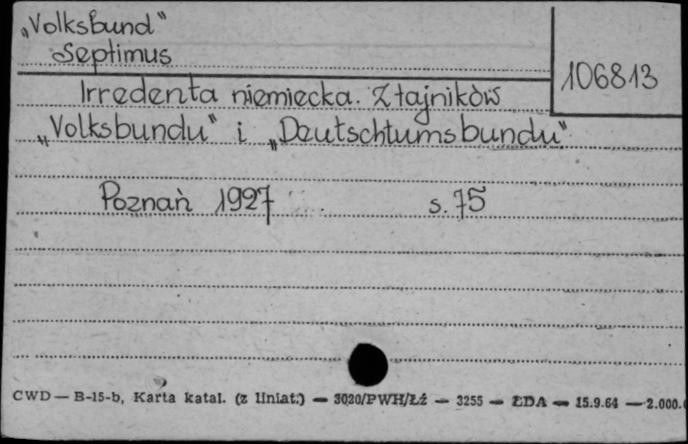 „Volksbund”
Septimus
106813
Irredenta niemiecka. Z tajników
„Volksbundu” i „Deutschtumsbundu”
Poznań 1927 s. 75
CWD — B-15-b, Karta katal. (z liniat.) — 3020/PWH/Łź — 3255 — ŁDA — 15.9.64 — 2.000.